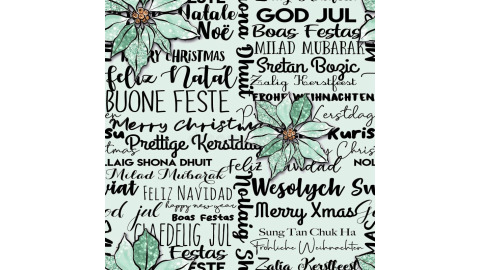 Natale
Noë
CHRISTMAS
feliz Natal
BUONE FESTE
Merry Christmas
Prettige Kerstdag
NOLLAIG SHONA DHUIT
Milad Mubarak
FELIZ NAVIDAD
happy new year
Boas Festas
god jul
GLAEDELIG JUL
Festas
FESTE
Shona Dhuit
Nollaig Sh
GOD JUL
Boas Festas
MILAD MUBARAK
Sretan Bozic
Zalig Kerstfeest
FROHE WEIHNACHTEN
Kerstdagen
Kuris
Feliz Navidad
NOL
Wesolych Sw
Merry Xmas
Sung Tan Chuk Ha
Fröhliche Weihnachten
Zalig Kerstfeest